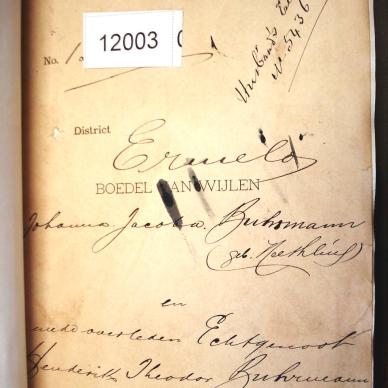 No. 1
12003
Husband's
No. 5436
District Ermelo
BOEDEL VAN WIJLEN
Johanna Jacoba Buhrmann
(geb. Neethling)
en
mede overleden Echtgenoot
Hendrik Theodor Buhrmann